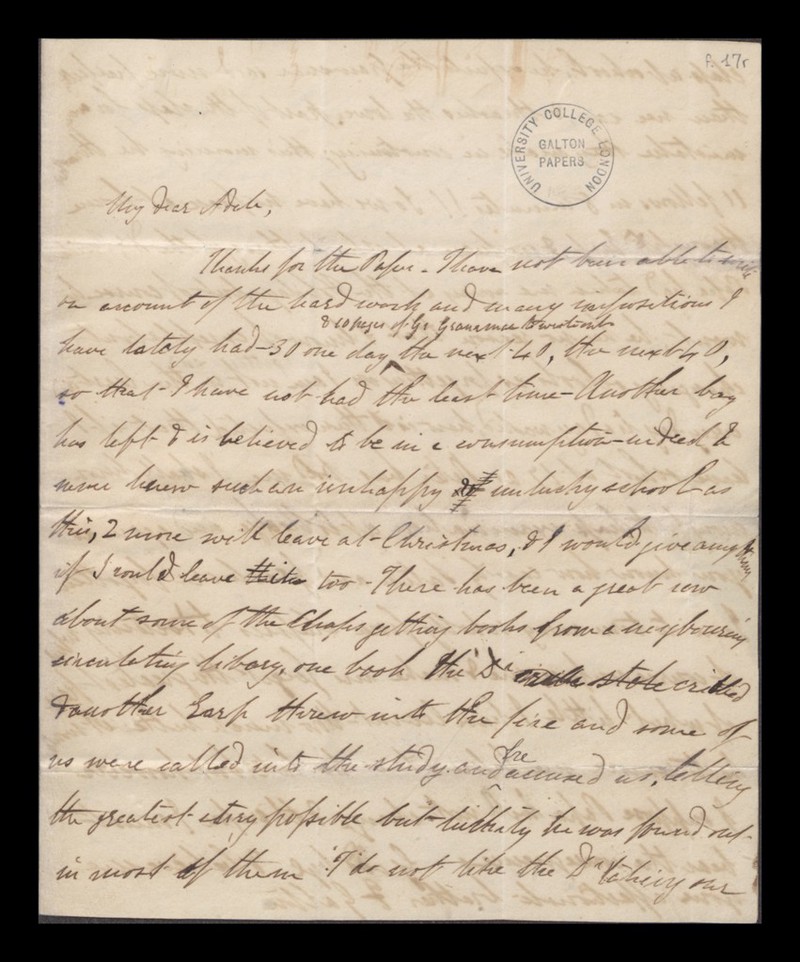 f. 17r
UNIVERSITY COLLEGE LONDON
GALTON
PAPERS
My Dear Adele,
Thanks for the Paper - I have not been able to write
on account of the hard work and many impositions I
& 10 pages of Gr Grammar to write out
have lately had - 30 one day the next 40, the next 40,
so that I have not had the least time - Another boy
has left & is believed to be in a consumption - indeed I
never knew such an unhappy & unlucky school as
this, 2 more will leave at Christmas, & I would give anything
if I could leave too - There has been a great row
about some of the Chaps getting books from a neybouring
circulating library, one book the Dr stole cribbed
& another Earp threw into the fire and some of
us were called into the study and he accused us, telling
the greatest story possible but luckily he was found out
in most of them I do not like the Dr taking our